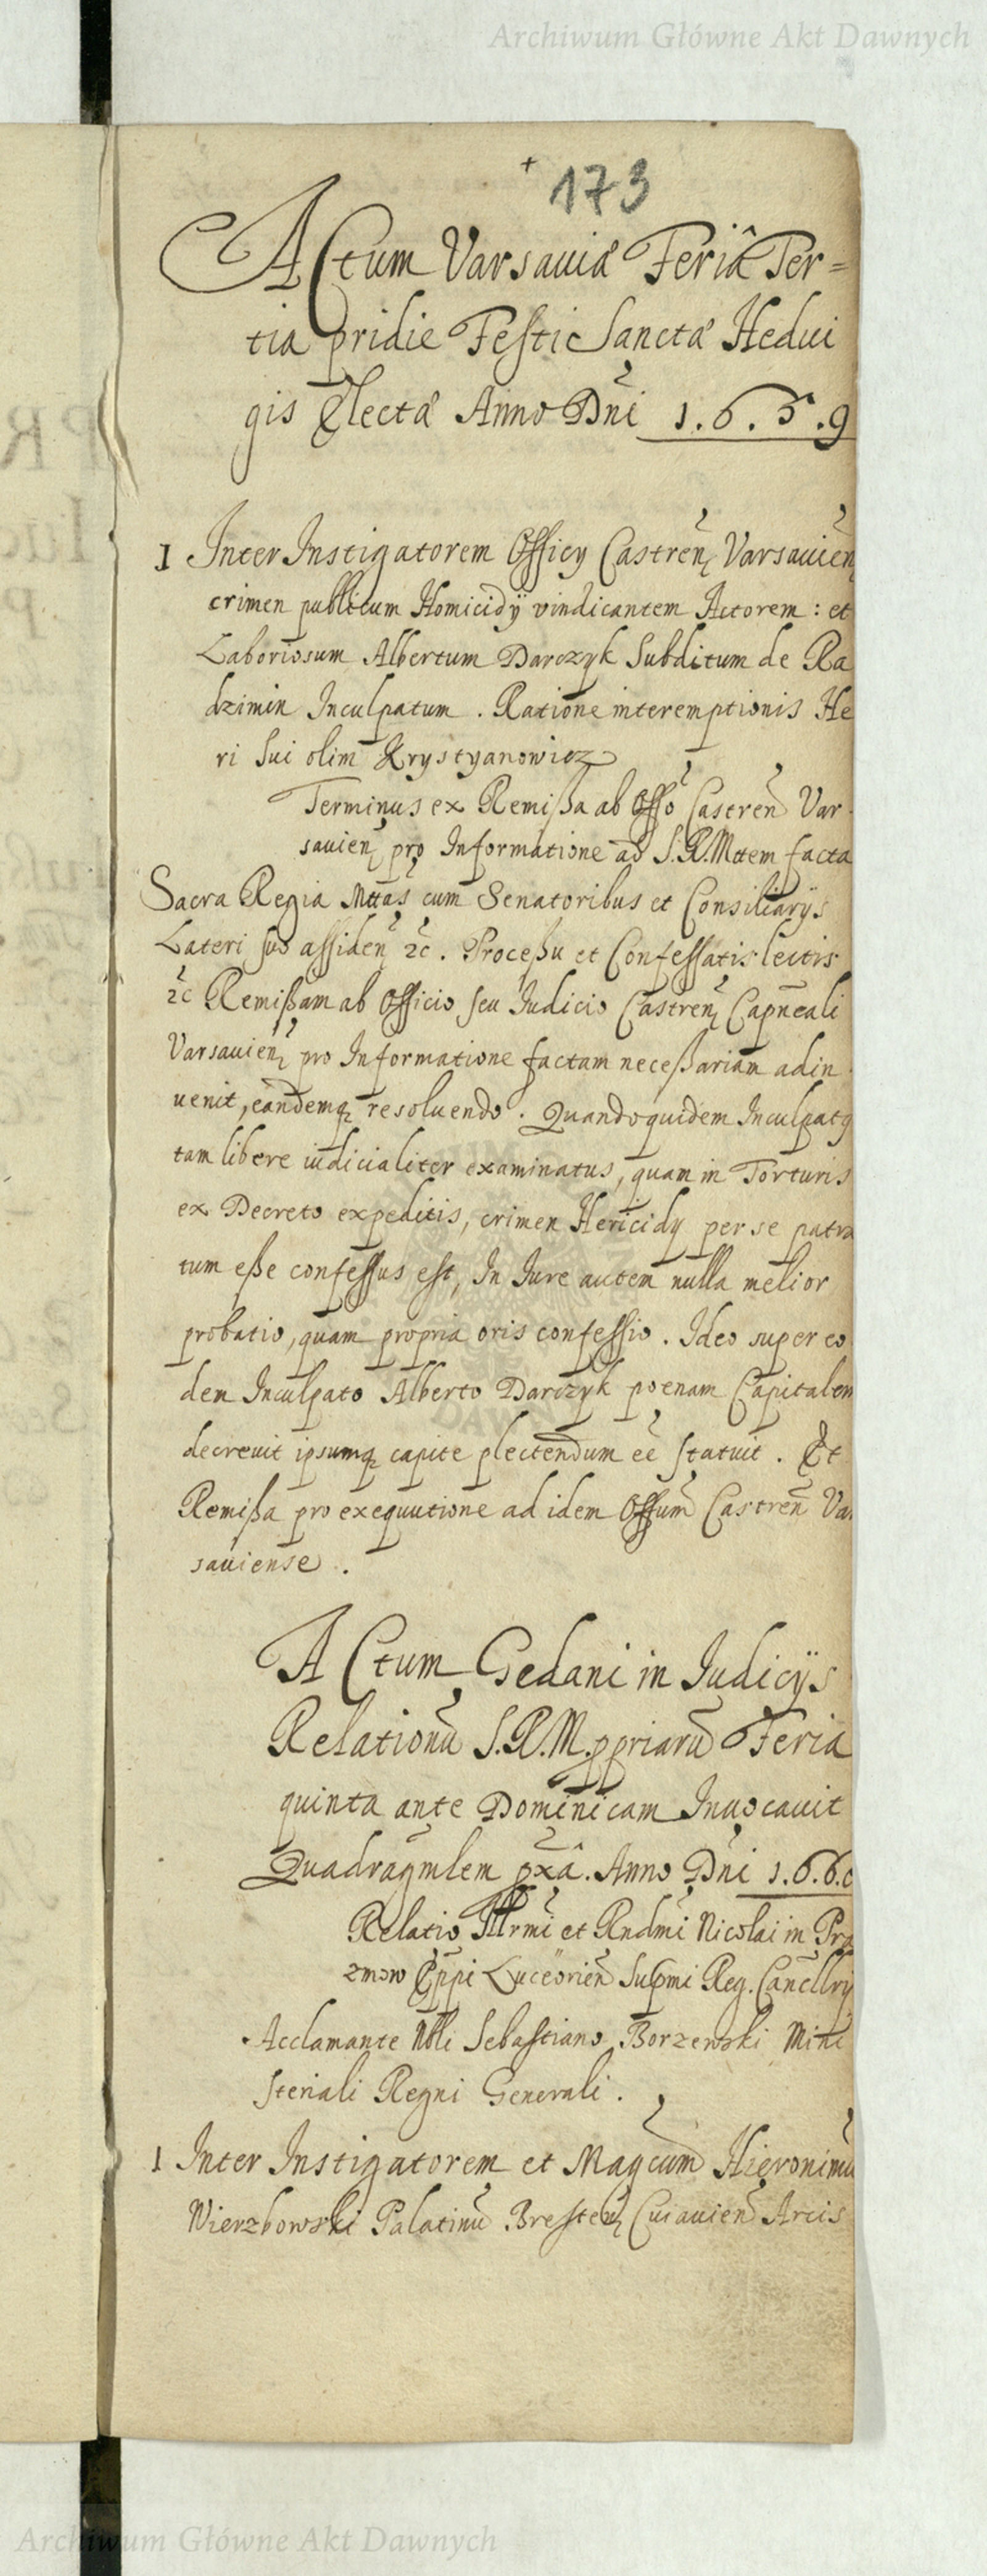 Archiwum Główne Akt Dawnych
+ 173
Actum Varsauiæ Feriâ Ter=
tia pridie Festi Sanctæ Hedui
gis Electæ Anno Dni 1.6.5.9
1 Inter Instigatorem Officy Castren Varsauien
crimen publicum Homicidÿ vindicantem Actorem : et
Laboriosum Albertum Darczyk Subditum de Ra
dzimin Inculpatum . Ratione interemptionis He
ri sui olim Krystyanowicz
Terminus ex Remißa ab Offo Castren Var
sauien pro Informatione ad S.R.Mttem facta
Sacra Regia Mttas cum Senatoribus et Consiliarÿs
Lateri suo assiden 2c . Proceßu et Confessatis lectis
2c Remißam ab Officio seu Iudicio Castren Capneali
Varsauien pro Informatione factam neceßariam adin
uenit, eandemq resoluendo . Quandoquidem Inculpatq
tam libere iudicialiter examinatus, quam in Torturis
ex Decreto expeditis, crimen Hericidy per se patra
tum eße confessus est, In Iure autem nulla melior
probatio, quam propria oris confessio . Ideo super eo
dem Inculpato Alberto Darczyk poenam Capitalem
decreuit ipsumq capite plectendum eē statuit . Et
Remißa pro exequutione ad idem Offum Castren Var
sauiense .
Actum Gedani in Iudicÿs
Relationū S.R.M. ppriarū Feria
quinta ante Dominicam Inuocauit
Quadragmlem pxâ. Anno Dni 1.6.6.0
Relatio Illrmi et Rndmi Nicolai in Pra
zmow Eppi Luceorien Supmi Reg. Cancllrÿ
Acclamante Nbli Sebastiano Borzewski Mini
steriali Regni Generali .
1 Inter Instigatorem et Magcum Hieronimū
Wierzbowski Palatinū Bresten Cuiauien Arcis
Archiwum Główne Akt Dawnych